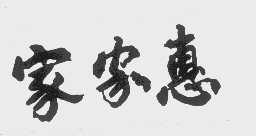 家家惠